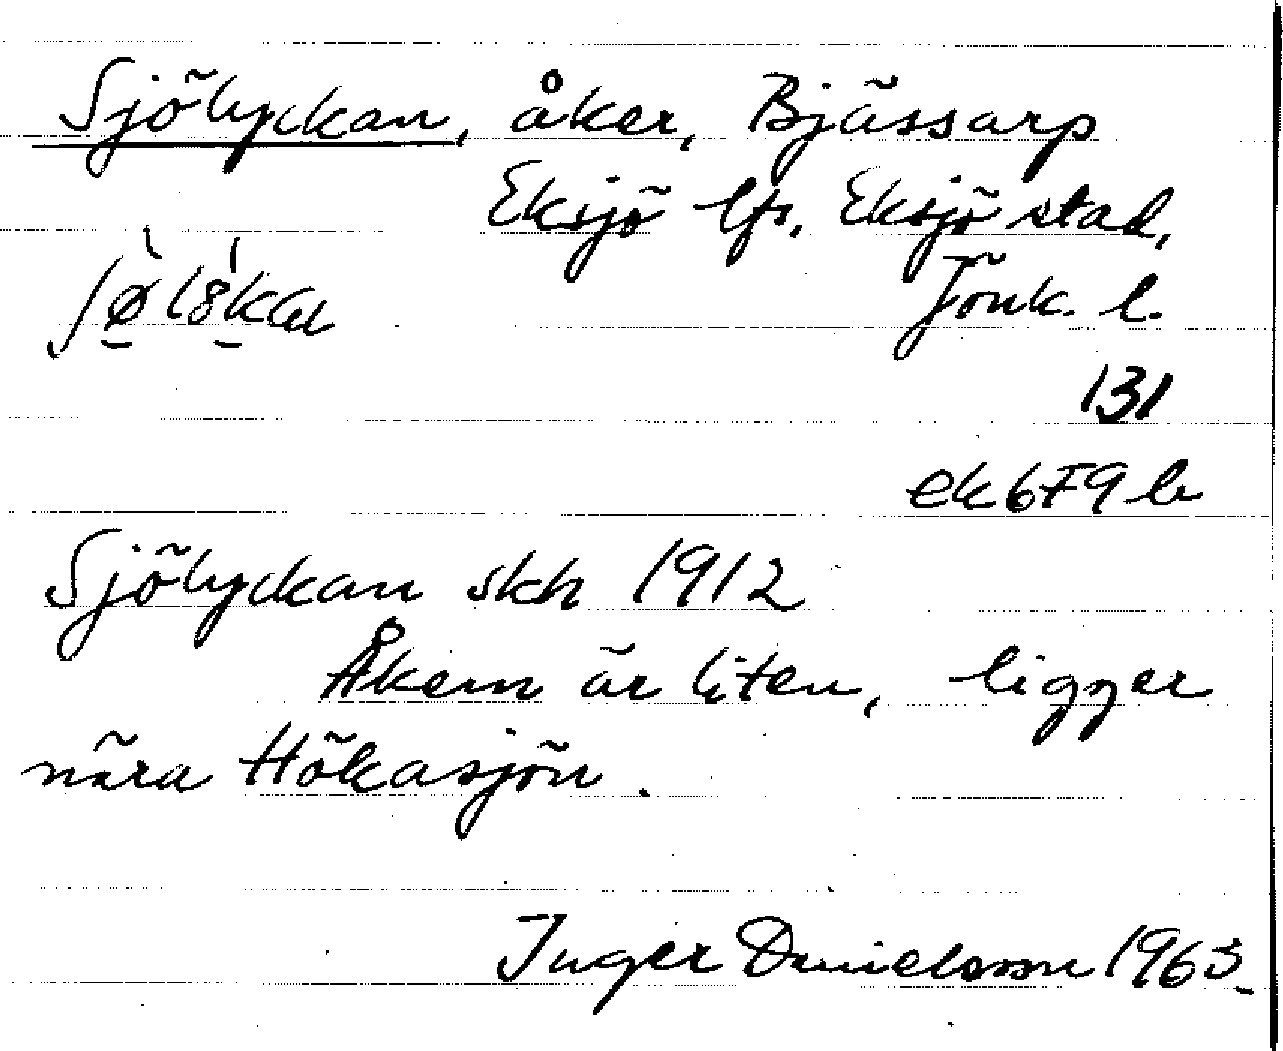 Sjölyckan, åker, Bjässarp
Eksjö lfs. Eksjö stad,
Jönk. l.
131
ek 6F9 b
Sjölyckan skh 1912
Åkern är liten, ligger
nära Hökasjön.
Inger Danielsson 1963